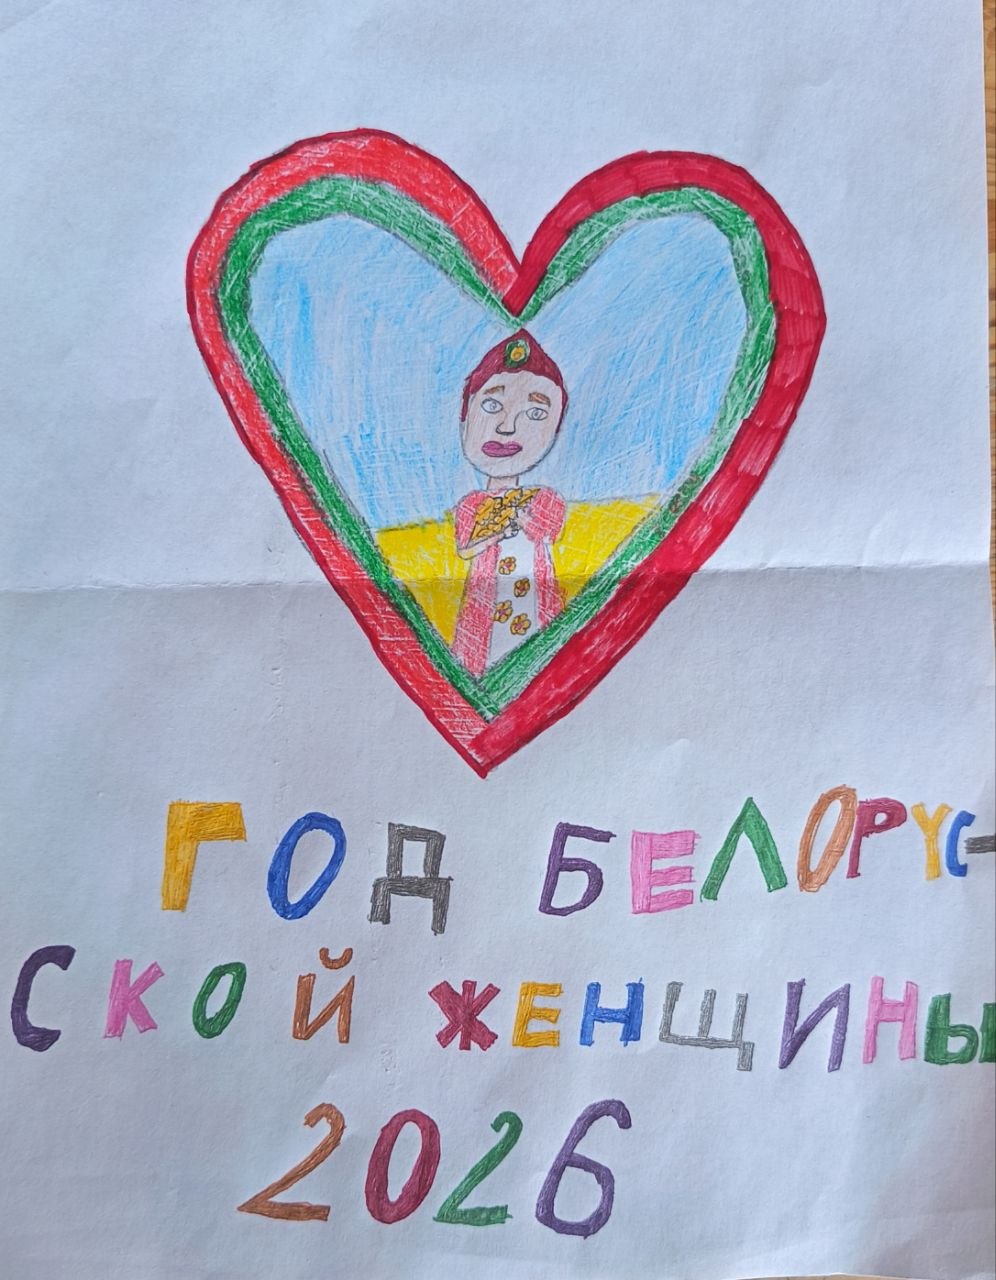 ГОД БЕЛОРУС-
СКОЙ ЖЕНЩИНЫ
2026